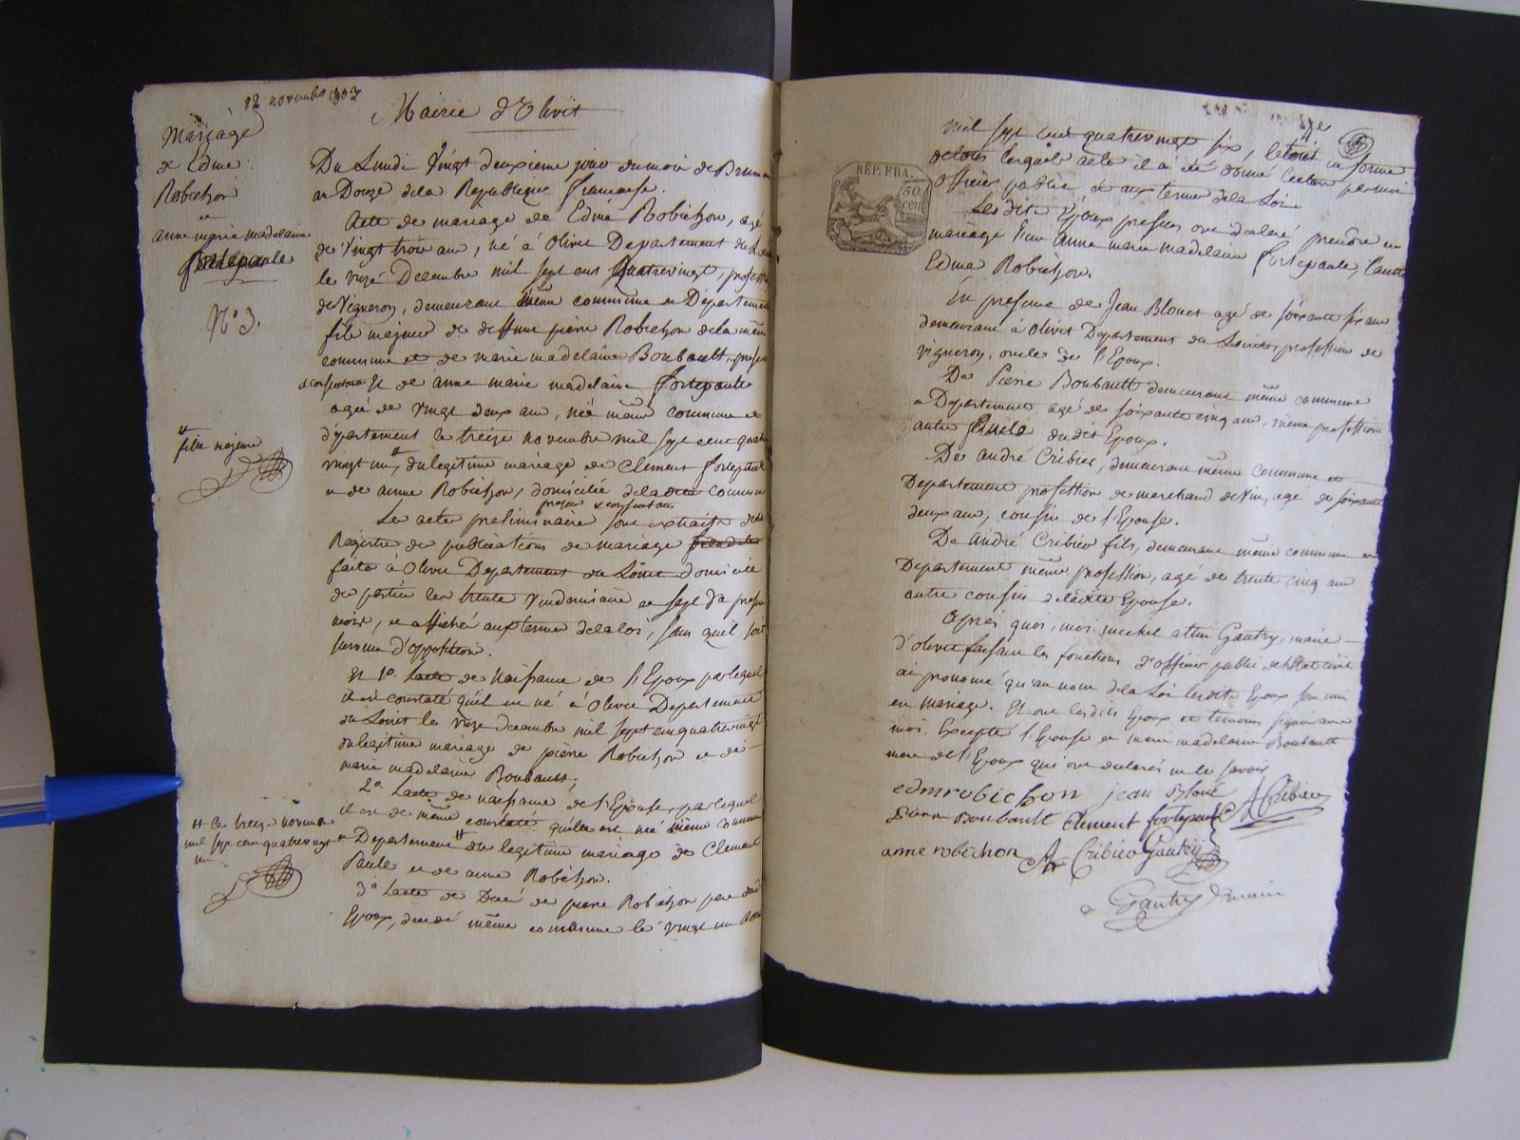 12 novembre 1803
Mairie d'Olivet
Mariage
de Edmé
Robichon
et
anne marie madelaine
fortepaule
N° 3.
Du Lundi Vingt deuxieme jour du mois de Brum
an Douze de la Republique francaise.
Acte de mariage de Edmé Robichon, agé
de Vingt trois ans, né à Olivet Departement du
le unze Decembre mil sept cent Quatrevingt, profession
de Vigneron, demeurant même commune et Departement
fils majeur de deffunt pierre Robichon de la même
commune et de marie madelaine Boubault,
et consentante Et de anne marie madelaine fortepaule
agée de vingt deux ans, née même commune et
departement le treize novembre mil sept cent quatre
vingt un, du legitime mariage de Clement fortepaule
fille majeure
et de anne Robichon, domiciliée de la dite commune
present et consentans
Les actes preliminaires sont extraits des
Registre de publications de mariage
faite à Olivet Departement du Loiret domicile
des parties les trente Vendemiaire et sept du present
mois, et affiches aux termes de la loi, sans quil soit
survenu d'opposition.
Et 1° Lacte de Naissance de l'Epoux par lequel
il est constaté quil est né à Olivet Departement
du Loiret le unze decembre mil sept cent quatrevingt
du legitime mariage de pierre Robichon et de
marie madelaine Boubault;
2° Lacte de naissance de l'Epouse, par lequel
il est de même constaté quelle est née même commune
et Departement du legitime mariage de Clement
le treize novembre
mil sept cent quatrevingt
un
Paule et de anne Robichon.
3° Lacte de Decès de pierre Robichon pere dudit
Epoux, decedé même commune le vingt un
mil sept cent quatrevingt six, le tout en forme
de tous lesquels actes il a été donné lecture par moi
officier public et aux termes de la Loi
REP. FRA.
50
cen
Les dits Epoux presens ont declaré prendre en
mariage l'un Anne marie madelaine fortepaule, l'autre
Edmé Robichon.
En presence de Jean Blouet agé de soixante six ans
demeurant à Olivet Departement du Loiret, profession de
vigneron, oncle de l'Epoux.
De Pierre Boubault demeurant même commune
et Departement agé de soixante cinq ans, même profession
autre oncle dudit Epoux.
De André Cribier, demeurant même commune et
Departement profession de marchand de Vin, agé de soixante
deux ans, cousin de l'Epouse.
De André Cribier fils, demeurant même commune et
Departement même profession, agé de trente cinq ans
autre cousin de ladite Epouse.
Après quoi, moi Gautry, maire
d'olivet faisant les fonctions d'officier public de l'Etat civil
ai prononcé qu'au nom de la Loi lesdits Epoux sont unis
en mariage. Et ont lesdits Epoux et temoins signé avec
moi. Excepté l'Epouse et marie madelaine Boubault
mere de l'Epoux qui ont declaré ne le savoir
edme robichon jean blouet
pierre Boubault Clement fortepaule A Cribier
anne robichon A Cribier Gautry
Gautry